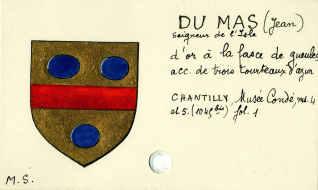 DU MAS (Jean)
seigneur de l'Isle
d'or à la fasce de gueules
acc. de trois tourteaux d'azur
CHANTILLY, Musée Condé, ms. 4
et 5. (1045 bis) fol. 1
M.S.